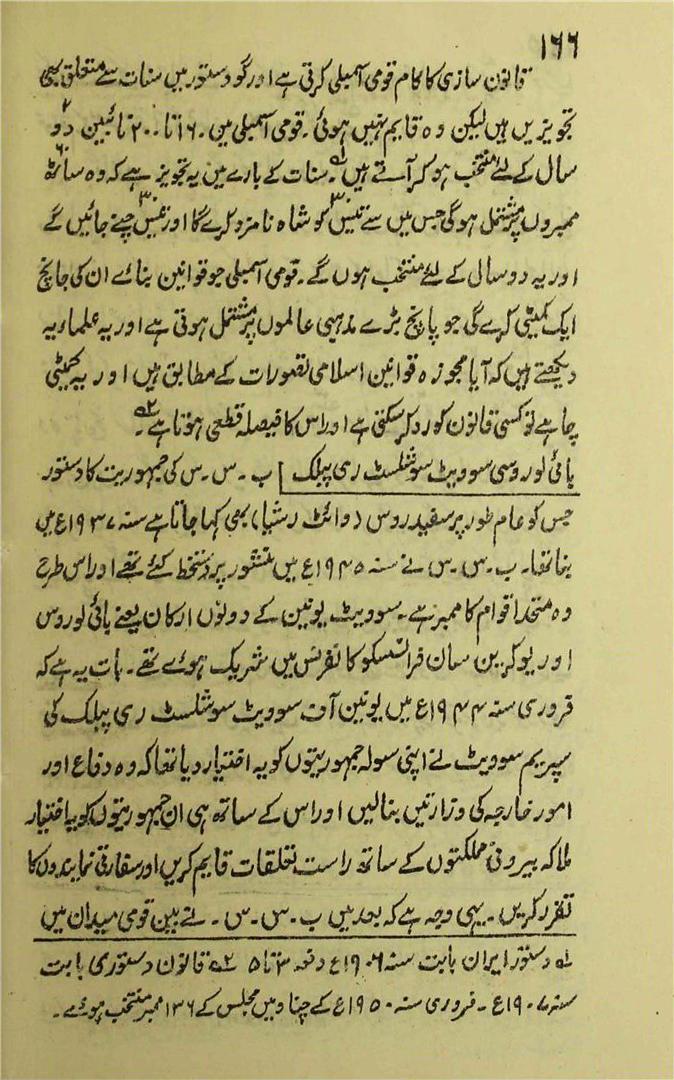 ۱۶۶
قانون سازی کا کام قومی اسمبلی کرتی ہے اور گو دستور میں سنات سے متعلق بھی
تجویزیں ہیں لیکن وہ قایم نہیں ہوئی۔ قومی اسمبلی میں ۔۱۶ تا ۲۰۰ نائبین دو۲
سال کے لئے منتخب ہو کر آتے ہیں۔ سنات کے بارے میں یہ تجویز ہے کہ وہ ساٹھ۶۰
ممبروں پر مشتمل ہوگی جس میں سے تیس۳۰ کو شاہ نامزد کرے گا اور تیس۳۰ چنے جائیں گے
اور یہ دو سال کے لئے منتخب ہوں گے۔ قومی اسمبلی جو قوانین بنائے ان کی جانچ
ایک کمیٹی کرے گی جو پانچ بڑے مذہبی عالموں پر مشتمل ہوتی ہے اور یہ علماء یہ
دیکھتے ہیں کہ آیا مجوزہ قوانین اسلامی تصورات کے مطابق ہیں اور یہ کمیٹی
چاہے تو کسی قانون کو رد کر سکتی ہے اور اس کا فیصلہ قطعی ہوتا ہے۔
بائی لو روسی سوویٹ سوشلسٹ ری پبلک | ب ۔ س ۔ س کی جمہوریت کا دستور
جس کو عام طور پر سفید روس (وائٹ رشیا) بھی کہا جاتا ہے سنہ ۱۹۳۷ع میں
بنا تھا۔ ب ۔ س ۔ س نے سنہ ۱۹۴۵ع میں منشور پر دستخط کئے تھے اور اس طرح
وہ متحدا قوام کا ممبر ہے۔ سوویٹ یونین کے دونوں ارکان یعنے بائی لو روس
اور یوکرین سان فرانسسکو کانفرنس میں شریک ہوئے تھے۔ بات یہ ہے کہ
فروری سنہ ۱۹۴۴ع میں یونین آف سوویٹ سوشلسٹ ری پبلک کی
سپریم سوویٹ نے اپنی سولہ جمہوریتوں کو یہ اختیار دیا تھا کہ وہ دفاع اور
امور خارجہ کی وزارتیں بنالیں اور اس کے ساتھ ہی ان جمہوریتوں کو یہ اختیار
ملا کہ بیرونی مملکتوں کے ساتھ راست تعلقات قایم کریں اور سفارتی نمایندوں کا
تقرر کریں۔ یہی وجہ ہے کہ بعد میں ب ۔ س ۔ س ۔ نے بین قومی میدان میں
۱؎ دستور ایران بابت سنہ ۱۹۰۶ع دفعہ ۳ تا ۵ ۲؎ قانون دستوری بابت
سنہ ۱۹۰۷ع ۔ فروری سنہ ۱۹۵۰ع کے چناو میں مجلس کے ۱۳۶ ممبر منتخب ہوئے۔